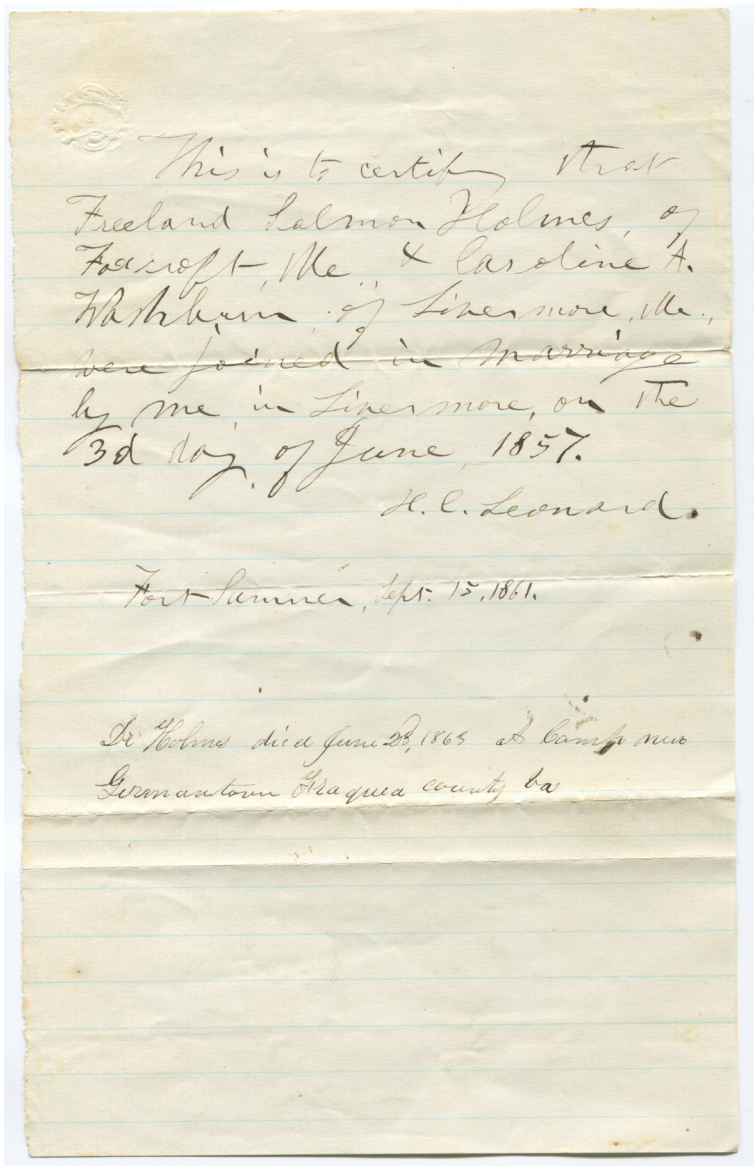 This is to certify that
Freeland Salmon Holmes, of
Foxcroft, Me & Caroline A.
Washburn, of Livermore, Me.,
were joined in marriage
by me, in Livermore, on the
3d day of June, 1857.
H. C. Leonard.
Fort Sumner, Sept. 15, 1861.
Dr Holmes died June 23, 1863 at Camp near
Germantown county